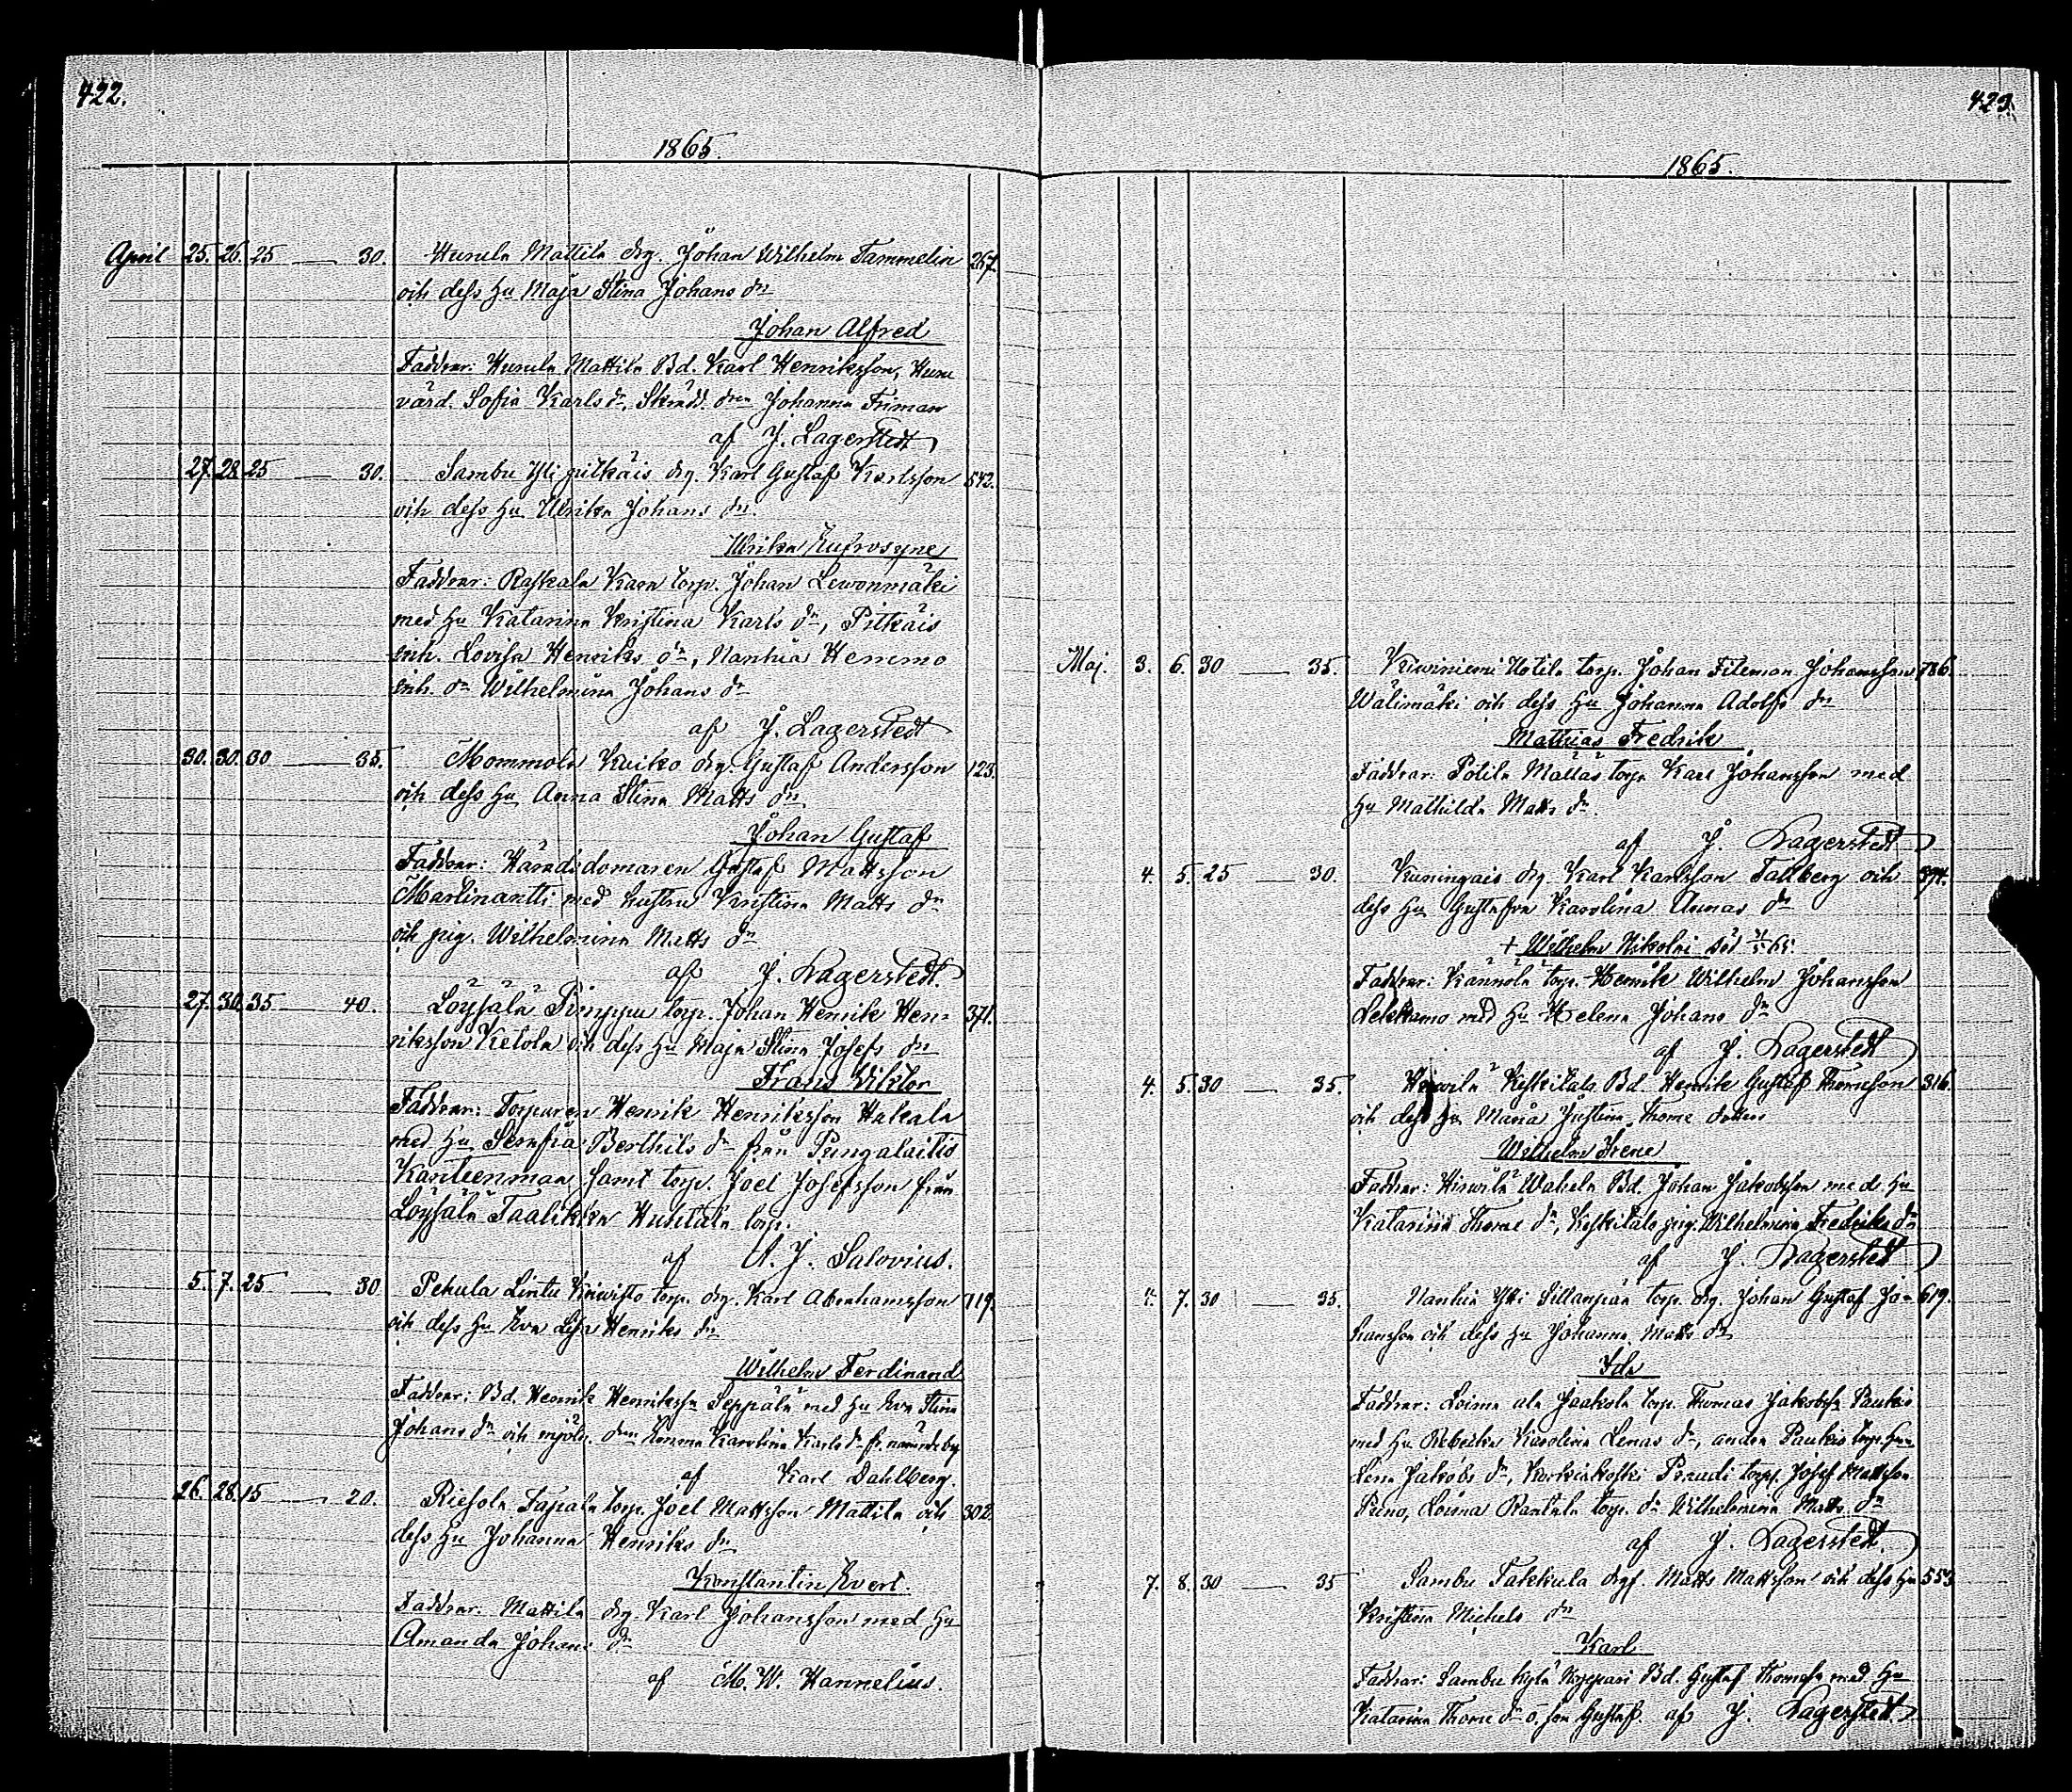 422.
1865.
April 25. 26. 25 — 30. Hurula Mattila drg. Johan Wilhelm Tammelin 257.
och dess hu Maja Stina Johans dr
Johan Alfred
Faddrar: Hurula Mattila Bd. Karl Henriksson,
värd. Sofia Karls dr, Skrädd. Johanna Friman
af J. Lagerstedt
27. 28. 25 — 30. Sambu Yli pitkäis drg. Karl Gustaf Karlsson
och dess hu Ulrika Johans dr.
Ulrika Eufrosyne
Faddrar: Raskala Kara torp. Johan Lewonmäki
med hu Katarina Kristina Karls dr, Pitkäis
inh. Lovisa Henriks dr, Nanhia Hemmo
inh. dr Wilhelmina Johans dr
af J. Lagerstedt
30. 30. 30 — 35. Mommola Kuiko drg. Gustaf Andersson 123.
och dess hu Anna Stina Matts dr
Johan Gustaf
Faddrar: Häradsdomaren Gustaf Mattsson
Martinantti med hustru Kristina Matts dr
och pig. Wilhelmina Matts dr
af J. Lagerstedt.
27. 30. 35 — 40. Löysälä Pimppu torp. Johan Henrik Hen- 371.
riksson Ketola och dess hu Maja Stina Josefs dr
Frans Viktor
Faddrar: Torparen Henrik Henriksson Hakala
med hu Serafia Berthils dr från Pungalaitio
Kanteenmaa samt torp. Joel Josefsson från
Löysälä Taalikka Huhtala torp.
af A. J. Salovius.
5. 7. 25 — 30. Pehula Lintu Kiwisto torp. drg. Karl Abrahamsson 719.
och dess hu Eva Lisa Henriks dr
Wilhelm Ferdinand
Faddrar: Bd. Henrik Henriksson Seppälä med hu Eva Stina
Johans dr och mjöln. Karolina Karls dr fr. nämnde by
af Karl Dahlberg.
26. 28. 15 — 20. Riesola Tapala torp. Joel Mattsson Mattila och 302.
dess hu Johanna Henriks dr
Konstantin Evert.
Faddrar: Mattila drg. Karl Johansson med hu
Amanda Johans dr
af M. W. Hannelius.
423.
1865.
Maj. 3. 6. 30 — 35. Kiwiniemi Uotila torp. Johan Fileman Johansson 786.
Wälimäki och dess hu Johanna Adolfs dr
Mathias Fredrik
Faddrar: Potila Mattas torp. Karl Johansson med
hu Mathilda Matts dr.
af J. Lagerstedt
4. 5. 25 — 30. Kuningais drg. Karl Karlsson Tallberg och 394.
dess hu Gustafva Karolina Annas dr
+ Wilhelm Nikolai död 65.
Faddrar: Kännölä torp. Henrik Wilhelm Johansson
med hu Helena Johans dr
af J. Lagerstedt
4. 5. 30 — 35. Keskitalo Bd. Henrik Gustaf Thomeson 316.
och dess hu Maria Justina Thome dotter
Wilhelm Irene
Faddrar: Hirwilä Wahela Bd. Johan Jakobsson med hu
Katarina Thome dr, Keskitalo pig. Wilhelmina Fredriks dr
af J. Lagerstedt
7. 30 — 35. Nanhia Yli Sillanpää torp. drg. Johan Gustaf Jo- 619.
hansson och dess hu Johanna Matts dr
Ida
Faddrar: Loima ala Jaakola torp. Thomas Jakobsson
med hu Rebecka Karolina Lenas dr, andra Paukio torp. hu
Lena Jakobs dr, Kurkiakoski Prendi torp. Josef Mattsson
Loima Rantala torp. dr Wilhelmina Matts dr
af J. Lagerstedt.
7. 8. 30 — 35 Sambu Takkula drg. Matts Mattsson och dess hu 553
Kristina Michels dr
Karl
Faddrar: Sambu Bd. Gustaf Thomess. med hu
Katarina Thome dr o. son Gustaf. af J. Lagerstedt